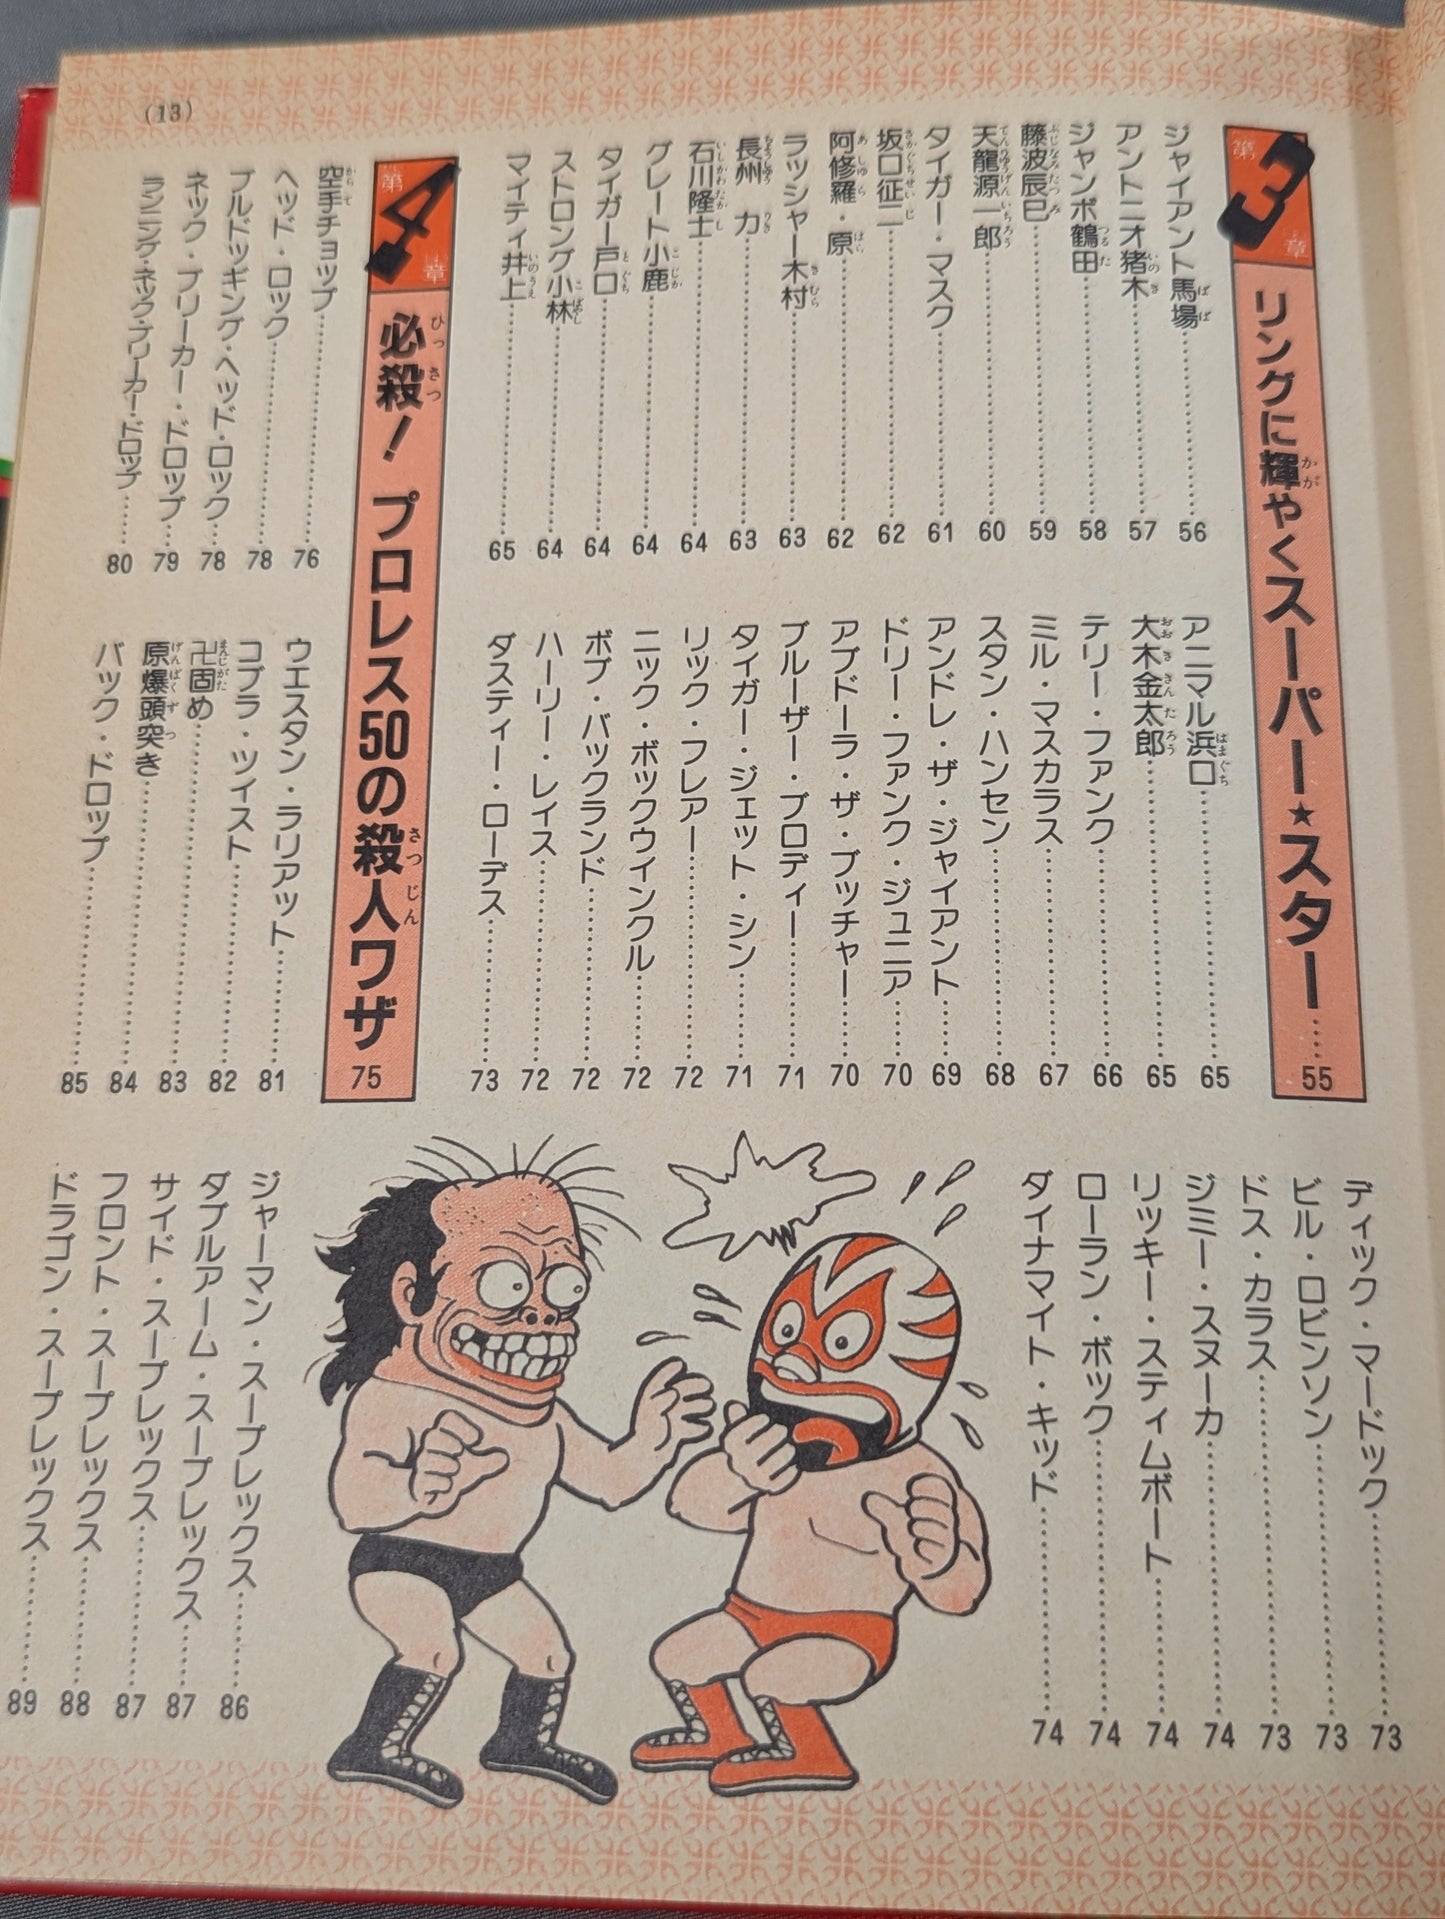 (13)
第3章 リングに輝やくスーパー★スター……55
ジャイアント馬場……56
アントニオ猪木……57
ジャンボ鶴田……58
藤波辰巳……59
天龍源一郎……60
タイガー・マスク……61
坂口征二……62
阿修羅・原……62
ラッシャー木村……63
長州 力……63
石川隆士……64
グレート小鹿……64
タイガー戸口……64
ストロング小林……64
マイティ井上……65
アニマル浜口……65
大木金太郎……65
テリー・ファンク……66
ミル・マスカラス……67
スタン・ハンセン……68
アンドレ・ザ・ジャイアント……69
ドリー・ファンク・ジュニア……70
アブドーラ・ザ・ブッチャー……70
ブルーザー・ブロディー……71
タイガー・ジェット・シン……71
リック・フレアー……72
ニック・ボックウインクル……72
ボブ・バックランド……72
ハーリー・レイス……72
ダスティー・ローデス……73
ディック・マードック……73
ビル・ロビンソン……73
ドス・カラス……73
ジミー・スヌーカ……74
リッキー・スティムボート……74
ローラン・ボック……74
ダイナマイト・キッド……74
第4章 必殺! プロレス50の殺人ワザ 75
空手チョップ……76
ヘッド・ロック……78
ブルドッギング・ヘッド・ロック……78
ネック・ブリーカー・ドロップ……79
ランニング・ネック・ブリーカー・ドロップ……80
ウエスタン・ラリアット……81
コブラ・ツイスト……82
卍固め……83
原爆頭突き……84
バック・ドロップ……85
ジャーマン・スープレックス……86
ダブルアーム・スープレックス……87
サイド・スープレックス……87
フロント・スープレックス……88
ドラゴン・スープレックス……89